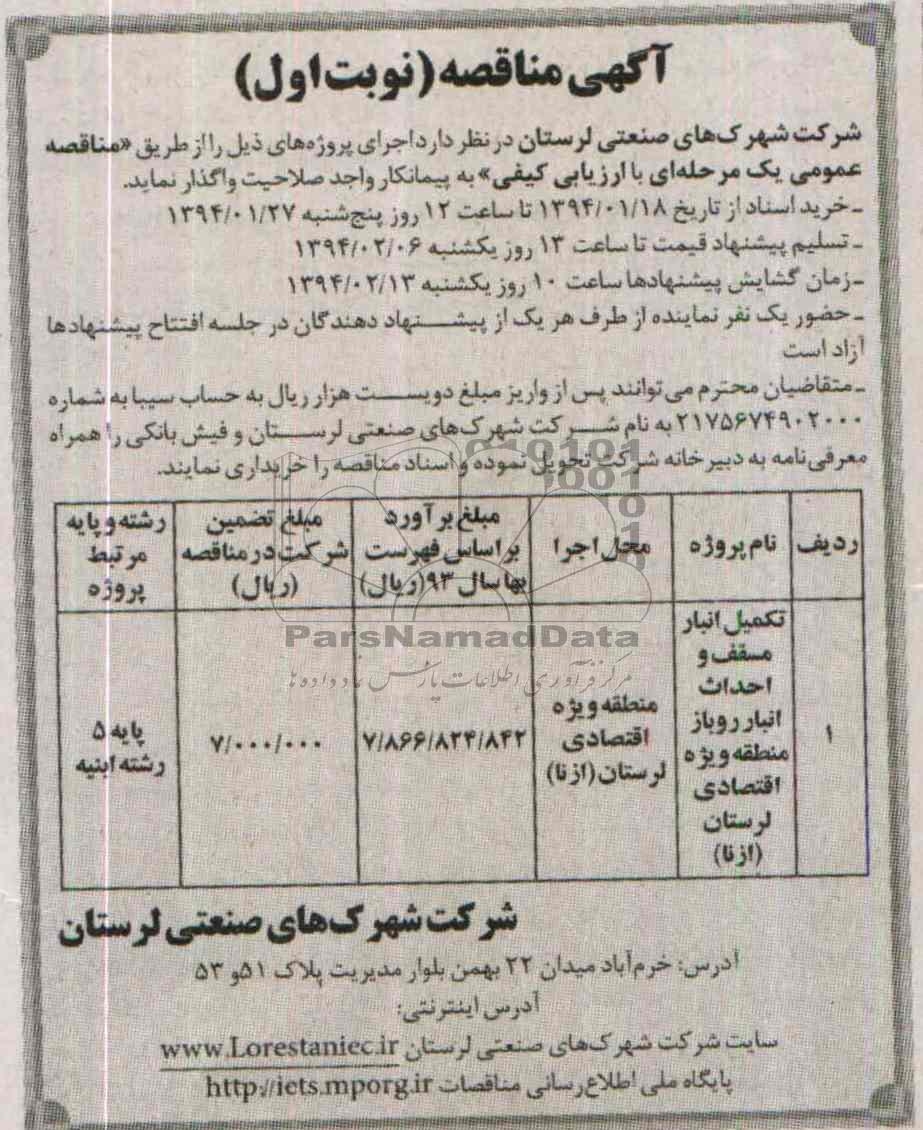 آگهی مناقصه (نوبت اول)
شرکت شهرک‌های صنعتی لرستان در نظر دارد اجرای پروژه‌های ذیل را از طریق «مناقصه
عمومی یک مرحله‌ای با ارزیابی کیفی» به پیمانکار واجد صلاحیت واگذار نماید.
ـ خرید اسناد از تاریخ ۱۳۹۴/۰۱/۱۸ تا ساعت ۱۲ روز پنج‌شنبه ۱۳۹۴/۰۱/۲۷
ـ تسلیم پیشنهاد قیمت تا ساعت ۱۳ روز یکشنبه ۱۳۹۴/۰۲/۰۶
ـ زمان گشایش پیشنهادها ساعت ۱۰ روز یکشنبه ۱۳۹۴/۰۲/۱۳
ـ حضور یک نفر نماینده از طرف هر یک از پیشنهاد دهندگان در جلسه افتتاح پیشنهادها
آزاد است
ـ متقاضیان محترم می‌توانند پس از واریز مبلغ دویست هزار ریال به حساب سیبا به شماره
۲۱۷۵۶۷۴۹۰۲۰۰۰ به نام شرکت شهرک‌های صنعتی لرستان و فیش بانکی را همراه
معرفی‌نامه به دبیرخانه شرکت تحویل نموده و اسناد مناقصه را خریداری نمایند.
ردیف نام پروژه محل اجرا مبلغ برآورد براساس فهرست بها سال ۹۳ (ریال) مبلغ تضمین شرکت در مناقصه (ریال) رشته و پایه مرتبط پروژه
۱ تکمیل انبار مسقف و احداث انبار روباز منطقه ویژه اقتصادی لرستان (ازنا) منطقه ویژه اقتصادی لرستان (ازنا) ۷/۸۶۶/۸۲۴/۸۴۲ ۷/۰۰۰/۰۰۰ پایه ۵ رشته ابنیه
ParsNamadData
مرکز فرآوری اطلاعات پارس نماد داده ها
شرکت شهرک‌های صنعتی لرستان
آدرس: خرم‌آباد میدان ۲۲ بهمن بلوار مدیریت پلاک ۵۱ و ۵۳
آدرس اینترنتی:
سایت شرکت شهرک‌های صنعتی لرستان www.Lorestaniec.ir
پایگاه ملی اطلاع‌رسانی مناقصات http://iets.mporg.ir